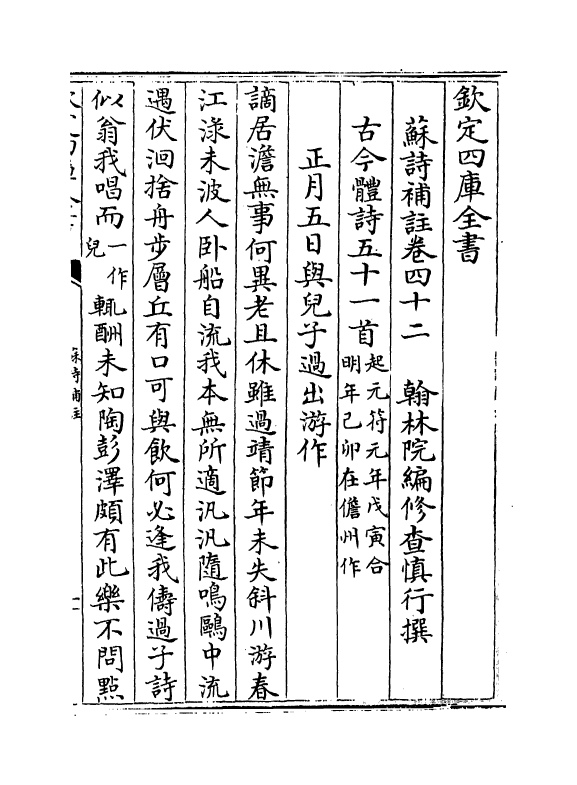 欽定四庫全書
蘇詩補註卷四十二　翰林院編修查慎行撰
古今體詩五十一首起元符元年戊寅合
明年己卯在儋州作
正月五日與兒子過出游作
謫居澹無事何異老且休雖過靖節年未失斜川游春
江淥未波人卧船自流我本無所適汎汎隨鳴鷗中流
遇伏洄捨舟步層丘有口可與飲何必逢我儔過子詩
似翁我唱而一作
兒輒酬未知陶彭澤頗有此樂不問㸃